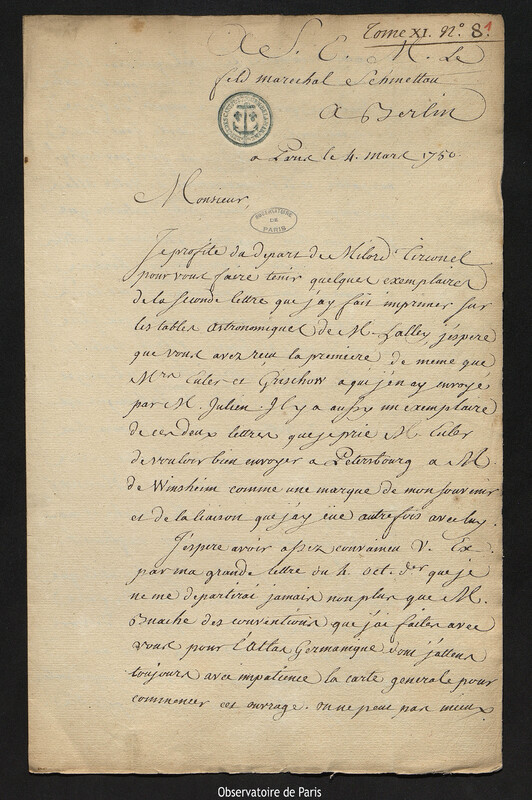 Tome XI. N.º 8.1
A S. E. M. Le
feld marechal Schmettau
A Berlin
a Paris le 4. mars 1750.
Monsieur,
OBSERVATOIRE
DE
PARIS
Je profite du depart de Milord Tirconel
pour vous faire tenir quelques exemplaires
de la seconde lettre que j'ay fait imprimer sur
les tables astronomiques de M. Halley j'espere
que vous avez recu la premiere de meme que
Mrs Euler et Grischow a qui j'en ay envoyé
par M. Julien. Il y a aussy un exemplaire
de ces deux lettres que je prie M. Euler
de vouloir bien envoyer a Petersbourg a M.
de Winsheim comme une marque de mon souvenir
et de la liaison que j'ay eüe autrefois avec luy.
J'espere avoir assez convaincu V. Ex.
par ma grande lettre du 4. oct. der que je
ne me departirai jamais non plus que M.
Buache des conventions que j'ai faites avec
vous pour l'Atlas Germanique dont j'attens
toujours avec impatience la carte generale pour
commencer cet ouvrage. on ne peut pas mieux
Observatoire de Paris